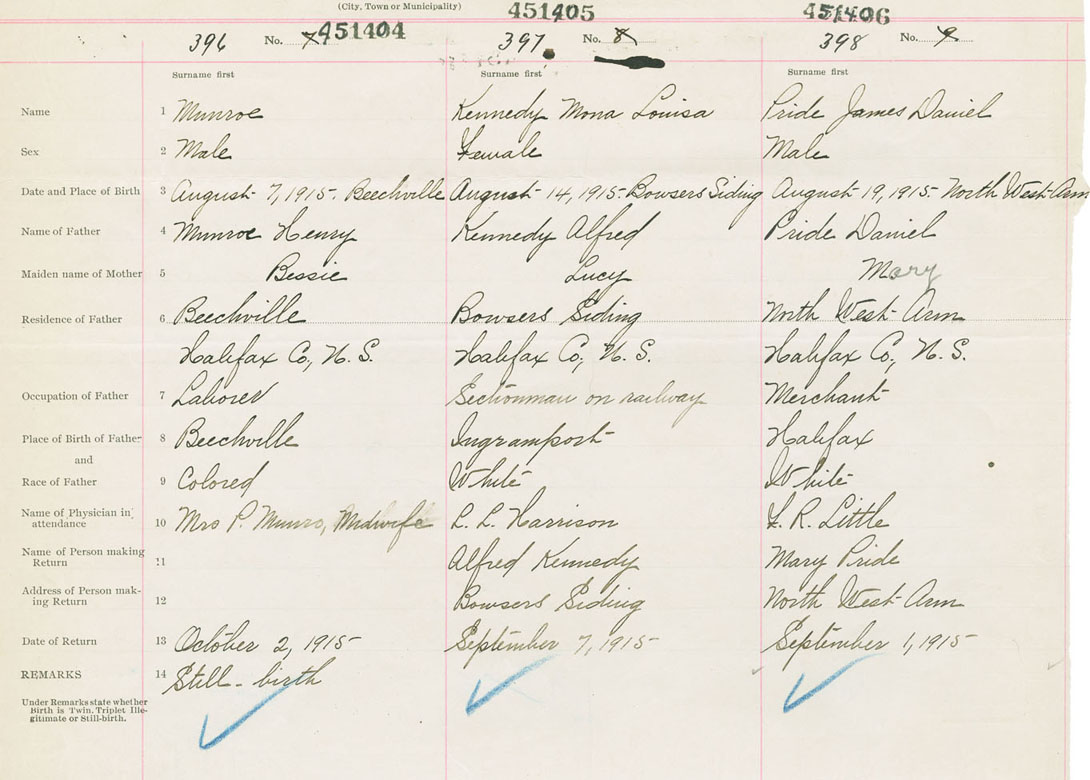 (City, Town or Municipality)
451404 451405 451406
396 No. 7 397 No. 8 398 No. 9
Surname first Surname first Surname first
Name 1 Munroe Kennedy Mona Louisa Pride James Daniel
Sex 2 Male Female Male
Date and Place of Birth 3 August 7, 1915. Beechville August 14, 1915. Bowsers Siding August 19, 1915. North West Arm
Name of Father 4 Munroe Henry Kennedy Alfred Pride Daniel
Maiden name of Mother 5 Bessie Lucy Mary
Residence of Father 6 Beechville Bowsers Siding North West Arm
Halifax Co, N. S. Halifax Co; N. S. Halifax Co; N. S.
Occupation of Father 7 Laborer Sectionman on railway Merchant
Place of Birth of Father 8 Beechville Ingramport Halifax
and
Race of Father 9 Colored White White
Name of Physician in attendance 10 Mrs P. Munro, Midwife L. L. Harrison F. R. Little
Name of Person making Return 11 Alfred Kennedy Mary Pride
Address of Person mak-ing Return 12 Bowsers Siding North West Arm
Date of Return 13 October 2, 1915 September 7, 1915 September 1, 1915
REMARKS 14 Still-birth
Under Remarks state whether
Birth is Twin. Triplet Ille-
gitimate or Still-birth.